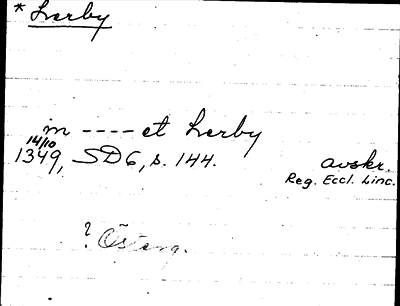 * Lerby
in ---- et Lerby
14/10
1349, SD6, s. 144. avskr.
Reg. Eccl. Linc.
? Österg.